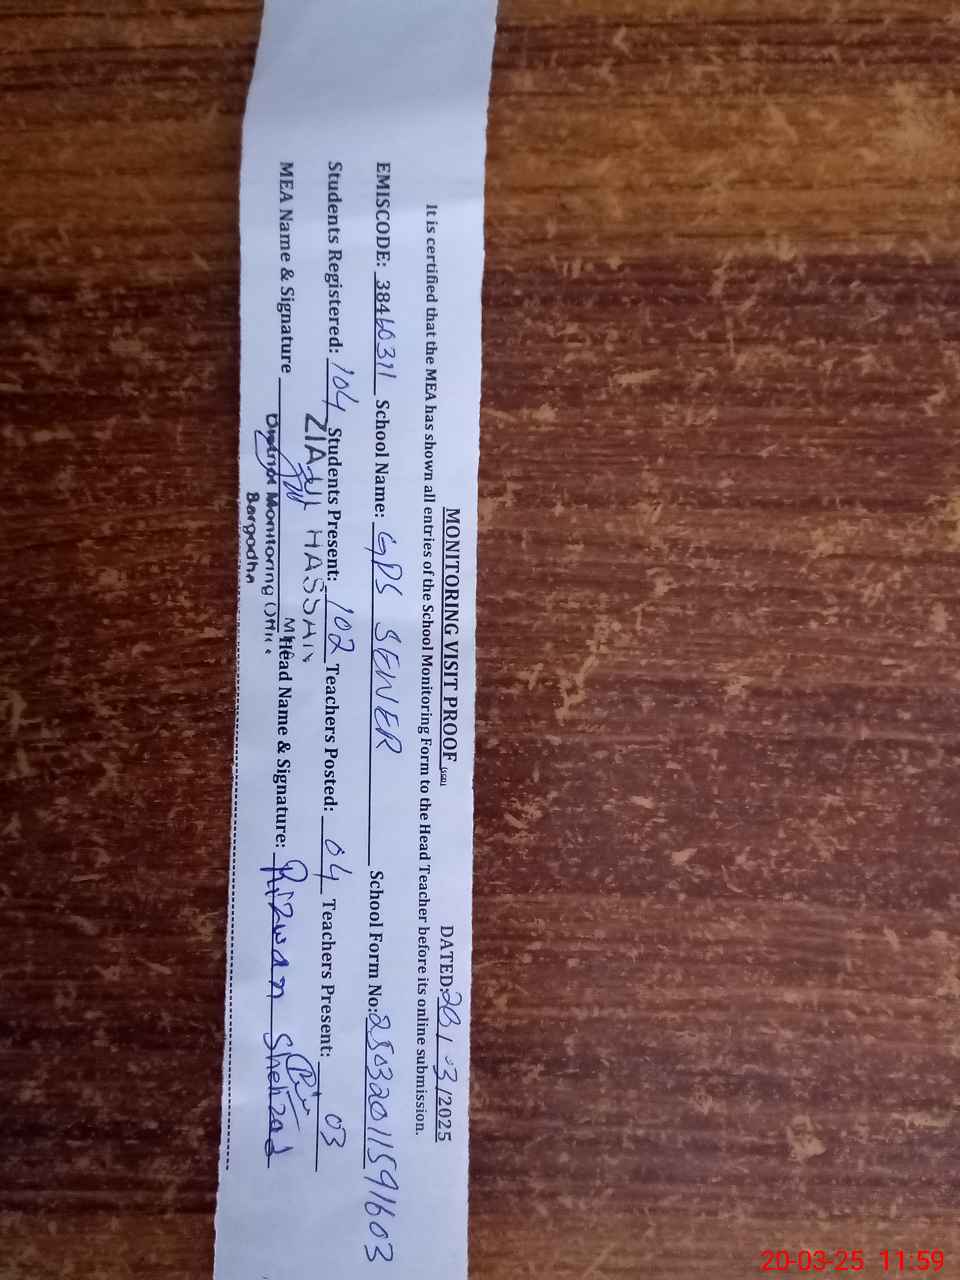 MONITORING VISIT PROOF (SED) DATED: 20/03/2025
It is certified that the MEA has shown all entries of the School Monitoring Form to the Head Teacher before its online submission.
EMISCODE: 38460311 School Name: GPS SEWER School Form No: 25032011591603
Students Registered: 104 Students Present: 102 Teachers Posted: 04 Teachers Present: 03
ZIA HASSAN
MEA Name & Signature Head Name & Signature: Rizwan Shehzad
District Monitoring Office
Sargodha
20-03-25 11:59